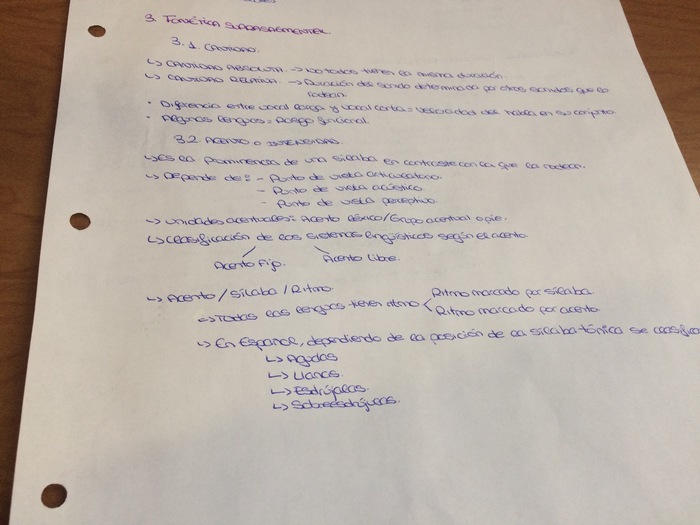 3. Fonética suprasegmental.
3.1. Cantidad.
↳ Cantidad absoluta. → No todos tienen la misma duración.
↳ Cantidad relativa. → Duración del sonido determinada por otros sonidos que lo
rodean.
• Diferencia entre vocal larga y vocal corta = velocidad del habla en su conjunto.
• Algunas lenguas = Rasgo funcional.
3.2. Acento o intensidad.
↳ Es la prominencia de una sílaba en contraste con la que la rodean.
↳ Depende de: - Punto de vista articulatorio.
- Punto de vista acústico.
- Punto de vista perceptivo.
↳ Unidades acentuales: Acento léxico/Grupo acentual o pie.
↳ Clasificación de los sistemas lingüísticos según el acento.
Acento fijo. Acento libre.
↳ Acento / sílaba / Ritmo.
↳ Todas las lenguas tienen ritmo < Ritmo marcado por sílaba.
Ritmo marcado por acento.
↳ En Español, dependiendo de la posición de la sílaba tónica se clasifica
↳ Agudas
↳ Llanas.
↳ Esdrújulas.
↳ Sobreesdrújulas.